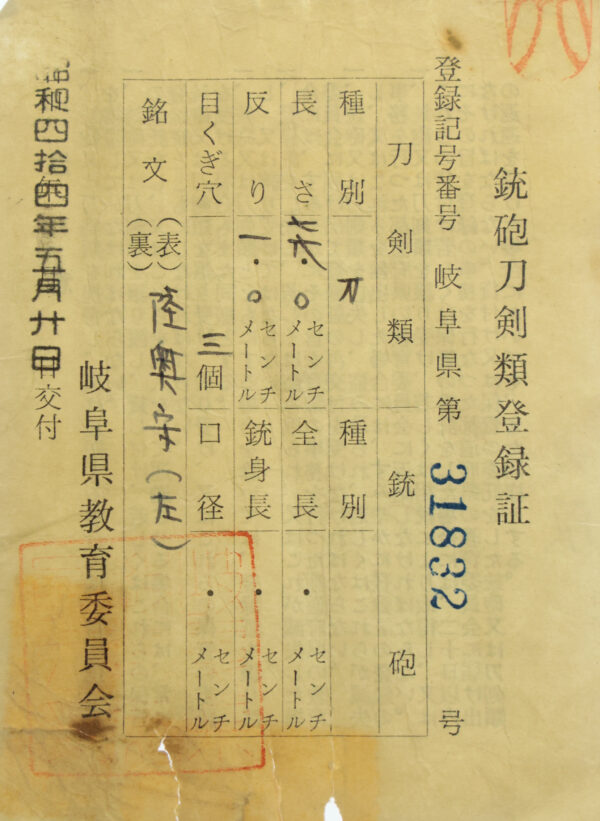 銃砲刀剣類登録証
登録記号番号 岐阜県第 31832 号
刀剣類 銃砲
種別 刀 種別
長さ 七六・〇 センチメートル 全長 ・ センチメートル
反り 一・〇 センチメートル 銃身長 ・ センチメートル
目くぎ穴 三個 口径 ・ センチメートル
銘文 (表) (裏) 陸奥守(左)
岐阜県教育委員会
昭和四拾四年五月廿日交付